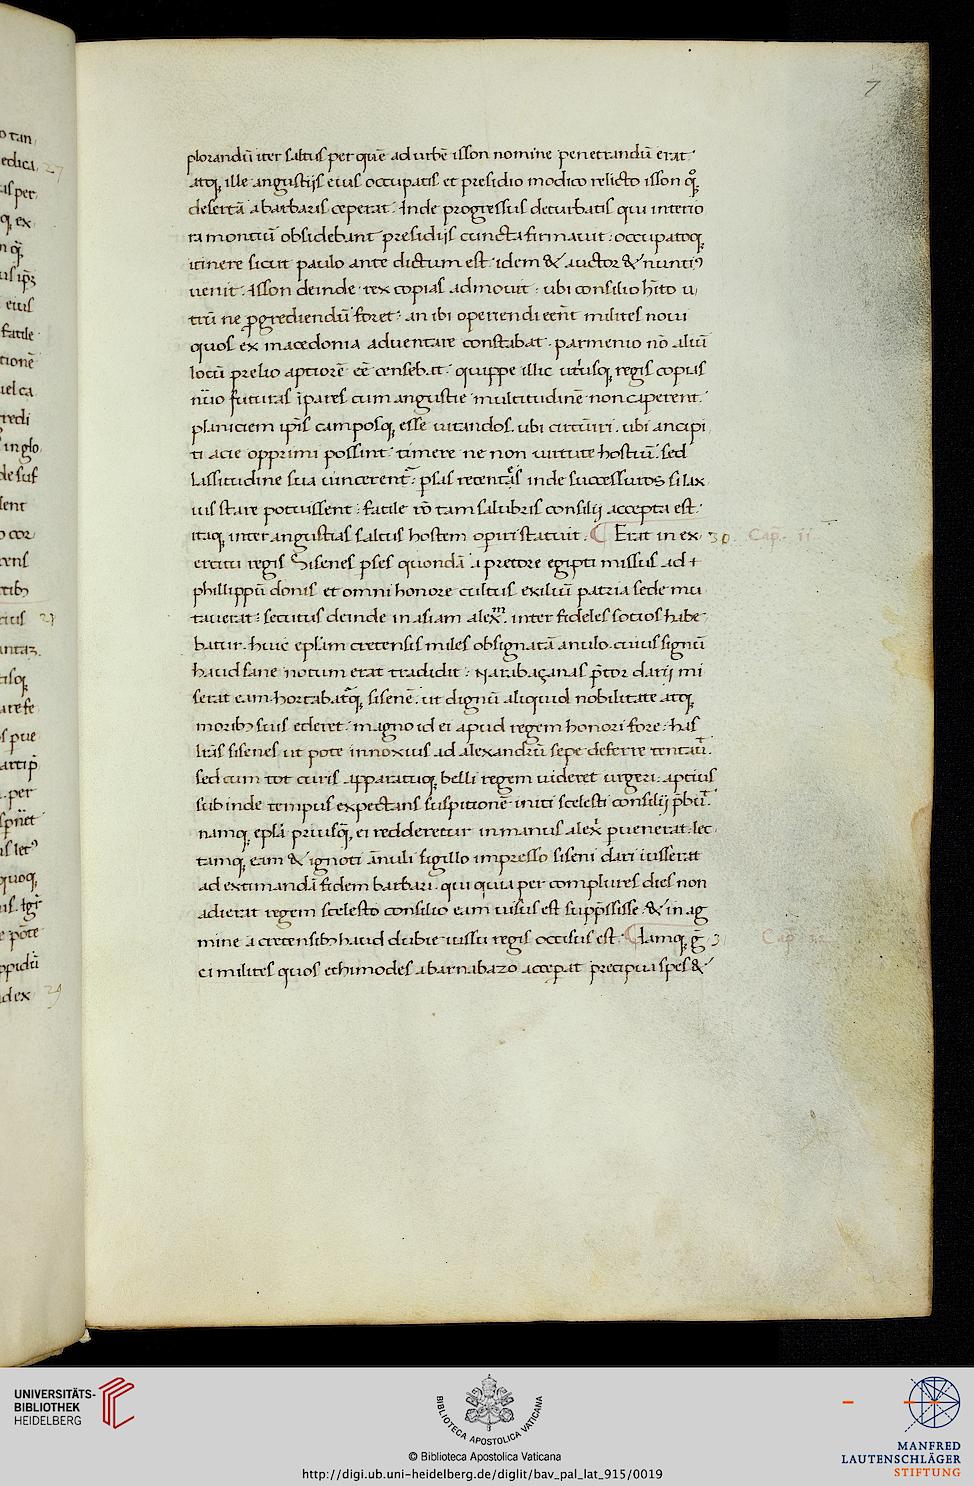 7
plorandū iter saltus per quē ad urbē isson nomine penetrandū erat·
atq; ille angustijs eius occupatis et presidio modico relicto isson q̄q;
desertā a barbaris ceperat· Inde progressus deturbatis qui interio
ra montiū obsidebant presidijs cuncta firmauit: occupatoq;
itinere sicut paulo ante dictum est· idem & auctor & nuntiꝰ
uenit· Isson deinde rex copias admouit· ubi consilio hīto u
trū ne ꝓgrediendū foret· an ibi operiendi eēnt milites noui
quos ex macedonia aduentare constabat· parmenio nō aliū
locū prelio aptiorē eē censebat· quippe illic utriusq; regis copias
nūo futuras īpares cum angustie multitudinē non caperent·
planiciem ipīs camposq; esse uitandos· ubi circūiri· ubi ancipi
ti acie opprimi possint· timere ne non uirtute hostiū· sed
lassitudine sua uincerent· ꝑsas recentes inde successuros si lax
ius stare potuissent: facile rō tam salubris consilij accepta est·
itaq; inter angustias saltus hostem opiri statuit· Erat in ex 30 Cap. ii
ercitu regis Sisenes ꝑses quondā a pretore egipti missus ad
phillippū donis et omni honore cultus exiliū patria sede mu
tauerat: secutus deinde in asiam alexm̄· inter fideles socios habe
batur· huic eplam cretensis miles obsignatā anulo· cuius signū
haud sane notum erat tradidit· Narabaçanas p̄tor darij mi
serat eam· hortabatq; sisenē· ut dignū aliquid nobilitate atq;
moribꝰ suis ederet· magno id ei apud regem honori fore· has
lrās sisenes ut pote innoxius ad alexandrū sepe deferre tentauit·
sed cum tot curis apparatuq; belli regem uideret urgeri· aptius
subinde tempus expectans suspitionē initi scelesti consilij p̄buit·
namq; epla priusq̄ ei redderetur in manus alex̄ puenerat· lec
tamq; eam & ignoti ānuli sigillo impresso siseni dari iusserat
ad extimandā fidem barbari· qui quia per complures dies non
adierat regem scelesto consilio eam uisus est supp̄ssisse· & in ag
mine a cretensibꝰ haud dubie iussu regis occisus est· Iamq; gr̄ 31 Cap.
ci milites quos ethimodes a barnabazo acceꝑat precipua spes &
27
29
UNIVERSITÄTS-
BIBLIOTHEK
HEIDELBERG
BIBLIOTECA APOSTOLICA VATICANA
© Biblioteca Apostolica Vaticana
http://digi.ub.uni-heidelberg.de/diglit/bav_pal_lat_915/0019
MANFRED
LAUTENSCHLÄGER
STIFTUNG